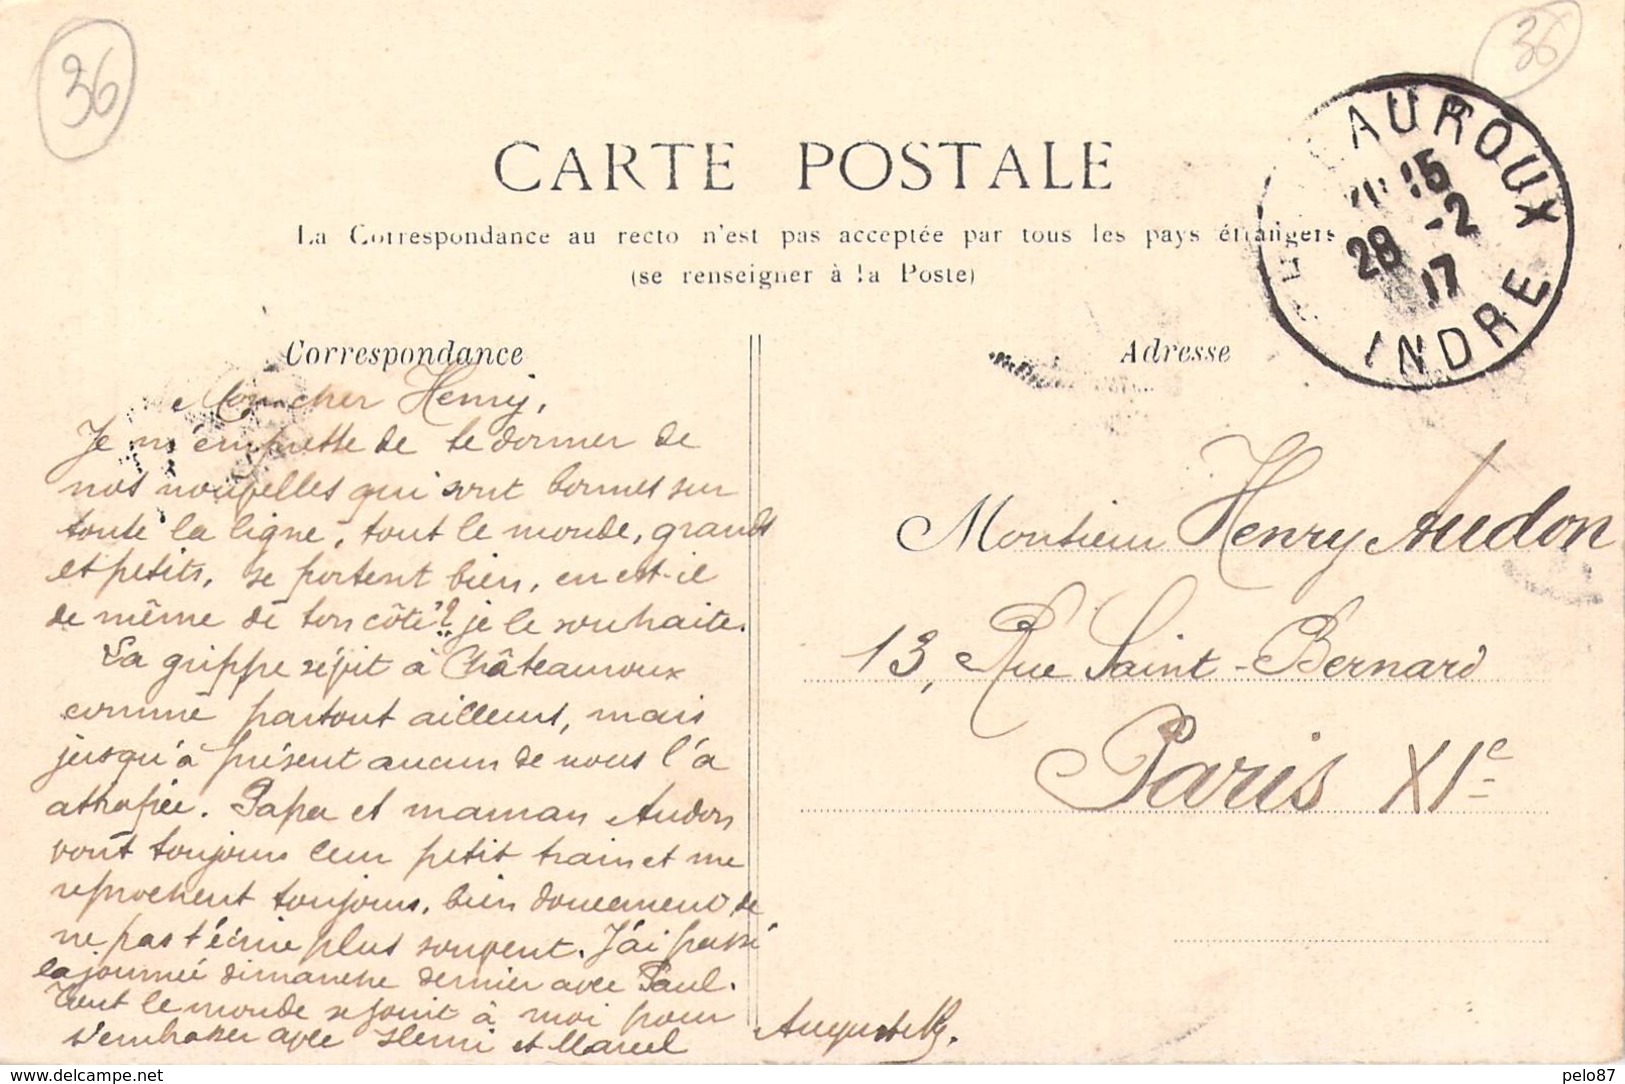 36
36
CARTE POSTALE
La Correspondance au recto n'est pas acceptée par tous les pays étrangers
(se renseigner à la Poste)
CHATEAUROUX
15
28 -2
17
INDRE
Correspondance
Mon cher Henry,
Je m'empresse de te donner de
nos nouvelles qui sont bonnes sur
toute la ligne, tout le monde, grands
et petits, se portent bien, en est-il
de même de ton côté? je le souhaite.
La grippe sévit à Châteauroux
comme partout ailleurs, mais
jusqu'à présent aucun de nous l'a
attrapée. Papa et maman Audon
vont toujours leur petit train et me
reprochent toujours, bien doucement de
ne pas t'écrire plus souvent. J'ai passé
la journée dimanche dernier avec Paul.
Tout le monde se joint à moi pour
t'embrasser avec Henri et Marcel
Auguste
Adresse
Monsieur Henry Audon
13, Rue Saint-Bernard
Paris XIe
delcampe.net
pelo87